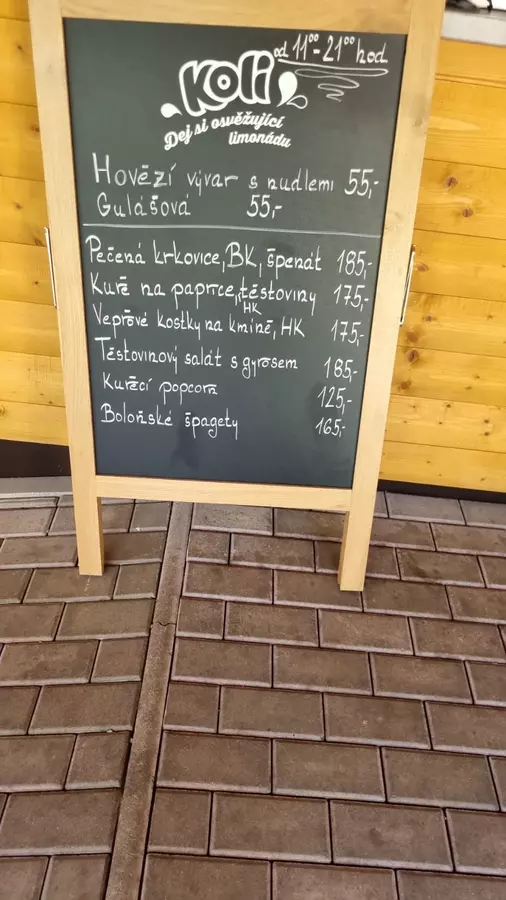 od 11⁰⁰-21⁰⁰ hod
Koli
Dej si osvěžující
limonádu
Hovězí vývar s nudlemi 55,-
Gulášová 55,-
Pečená krkovice, BK, špenát 185,-
Kuře na paprice, těstoviny 175,-
HK
Vepřové kostky na kmíně, HK 175,-
Těstovinový salát s gyrosem 185,-
Kuřecí popcorn 125,-
Boloňské špagety 165,-